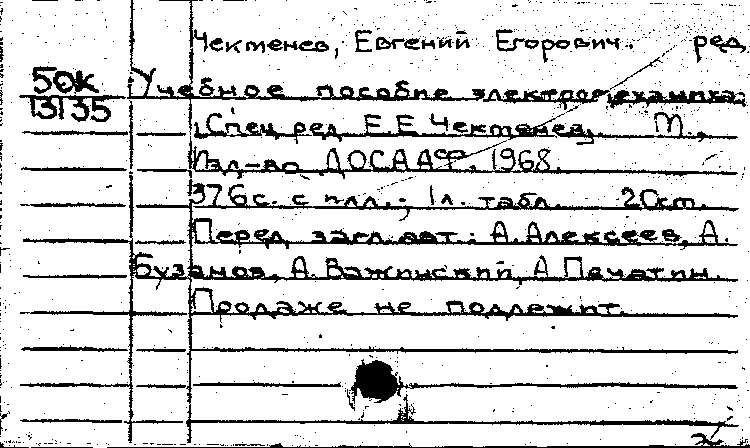 Чектенев, Евгений Егорович. ред
50К
13135
Учебное пособие электромеханика.
Спец ред Е.Е Чектенев. М.,
Изд-во ДОСААФ, 1968.
376с. с илл.; 1л. табл. 20см.
Перед загл. авт.: А.Алексеев, А.
Бузанов, А. Важинский, А Печатин.
Продаже не подлежит.